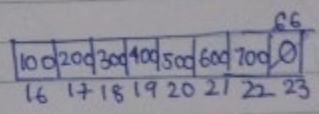 66
100 200 300 400 500 600 700 0
16 17 18 19 20 21 22 23